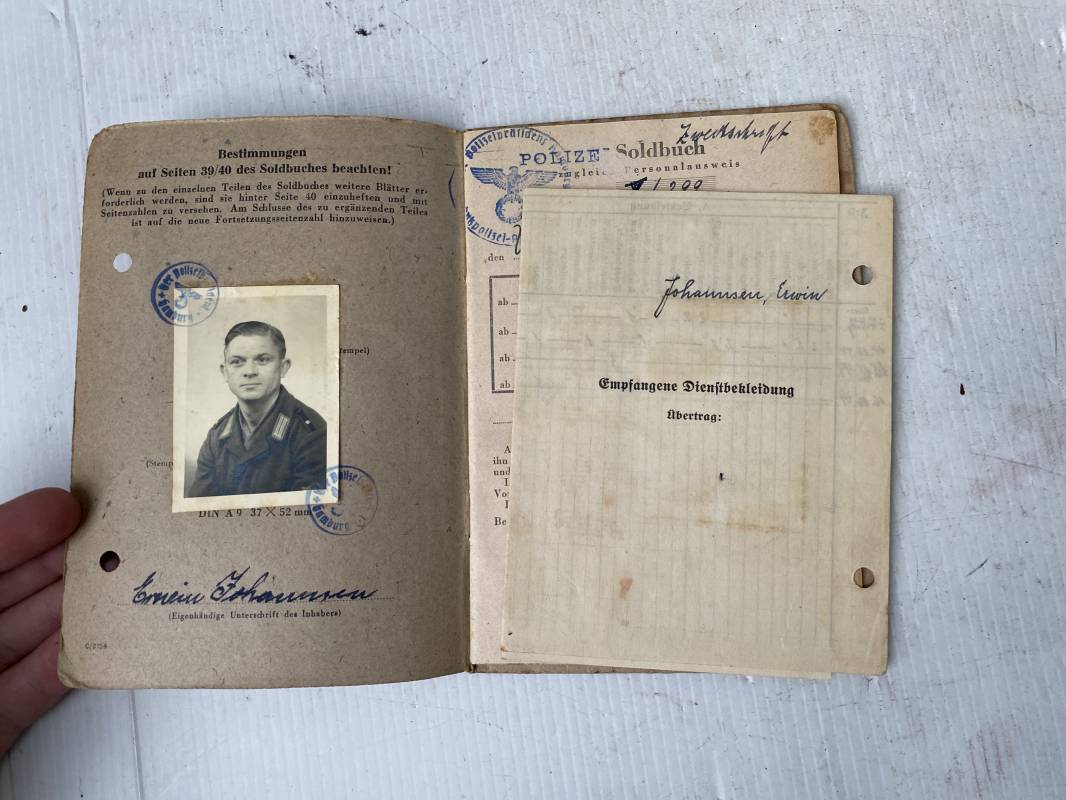 Bestimmungen
auf Seiten 39/40 des Soldbuches beachten!
(Wenn zu den einzelnen Teilen des Soldbuches weitere Blätter er-
forderlich werden, sind sie hinter Seite 40 einzuheften und mit
Seitenzahlen zu versehen. Am Schlusse des zu ergänzenden Teiles
ist auf die neue Fortsetzungsseitenzahl hinzuweisen.)
Hamburg
tempel)
(Stemp
Hamburg
DIN A 9 37 × 52 mm
Erwin Johannsen
(Eigenhändige Unterschrift des Inhabers)
Zweitschrift
Polizeipräsident
POLIZEI Soldbuch
zugleich Personalausweis
den
ab
ab
ab
ab
A
ihn
und
Vo
Be
Johannsen, Erwin
Empfangene Dienstbekleidung
Übertrag: